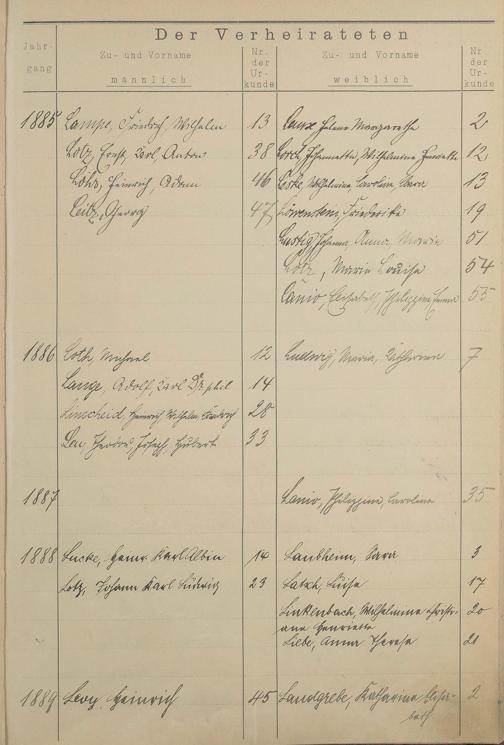 Der Verheirateten
Jahr-
gang
Zu- und Vorname
männlich
Nr.
der
Ur-
kunde
Zu- und Vorname
weiblich
Nr.
der
Ur-
kunde
1885 Lampe, Friedrich, Wilhelm 13 Helene Margarethe 2
Lotz, Ernst, Karl, Anton 38 Johannette, Wilhelmine, Henriette 12
Löhr, Heinrich, Adam 46 Wilhelmine, Caroline, Sara 13
Leitz, Georg 47 Löwenstein, Friederike 19
Lustig, Johanna, Anna, Maria 51
Lotz, Maria Louise 54
Lanio, Elisabeth, Philippine, Emma 55
1886 Loth, Michael 12 Ludwig, Maria, Catharina 7
Lange, Adolf, Karl Dr. phil 14
Limscheid, Heinrich, Wilhelm, Friedrich 28
Leu, Theodor, Joseph, Hubert 33
1887 Lanio, Philippine, Caroline 35
1888 Lucke, Herm. Karl Albin 14 Laubheim, Sara 3
Lotz, Johann Karl Ludwig 23 Latsch, Luise 17
Linkenbach, Wilhelmine Christi- 20
ane Henriette
Liebe, Anna Theresa 21
1889 Levy, Heinrich 45 Landgrebe, Katharina Elisa- 2
beth